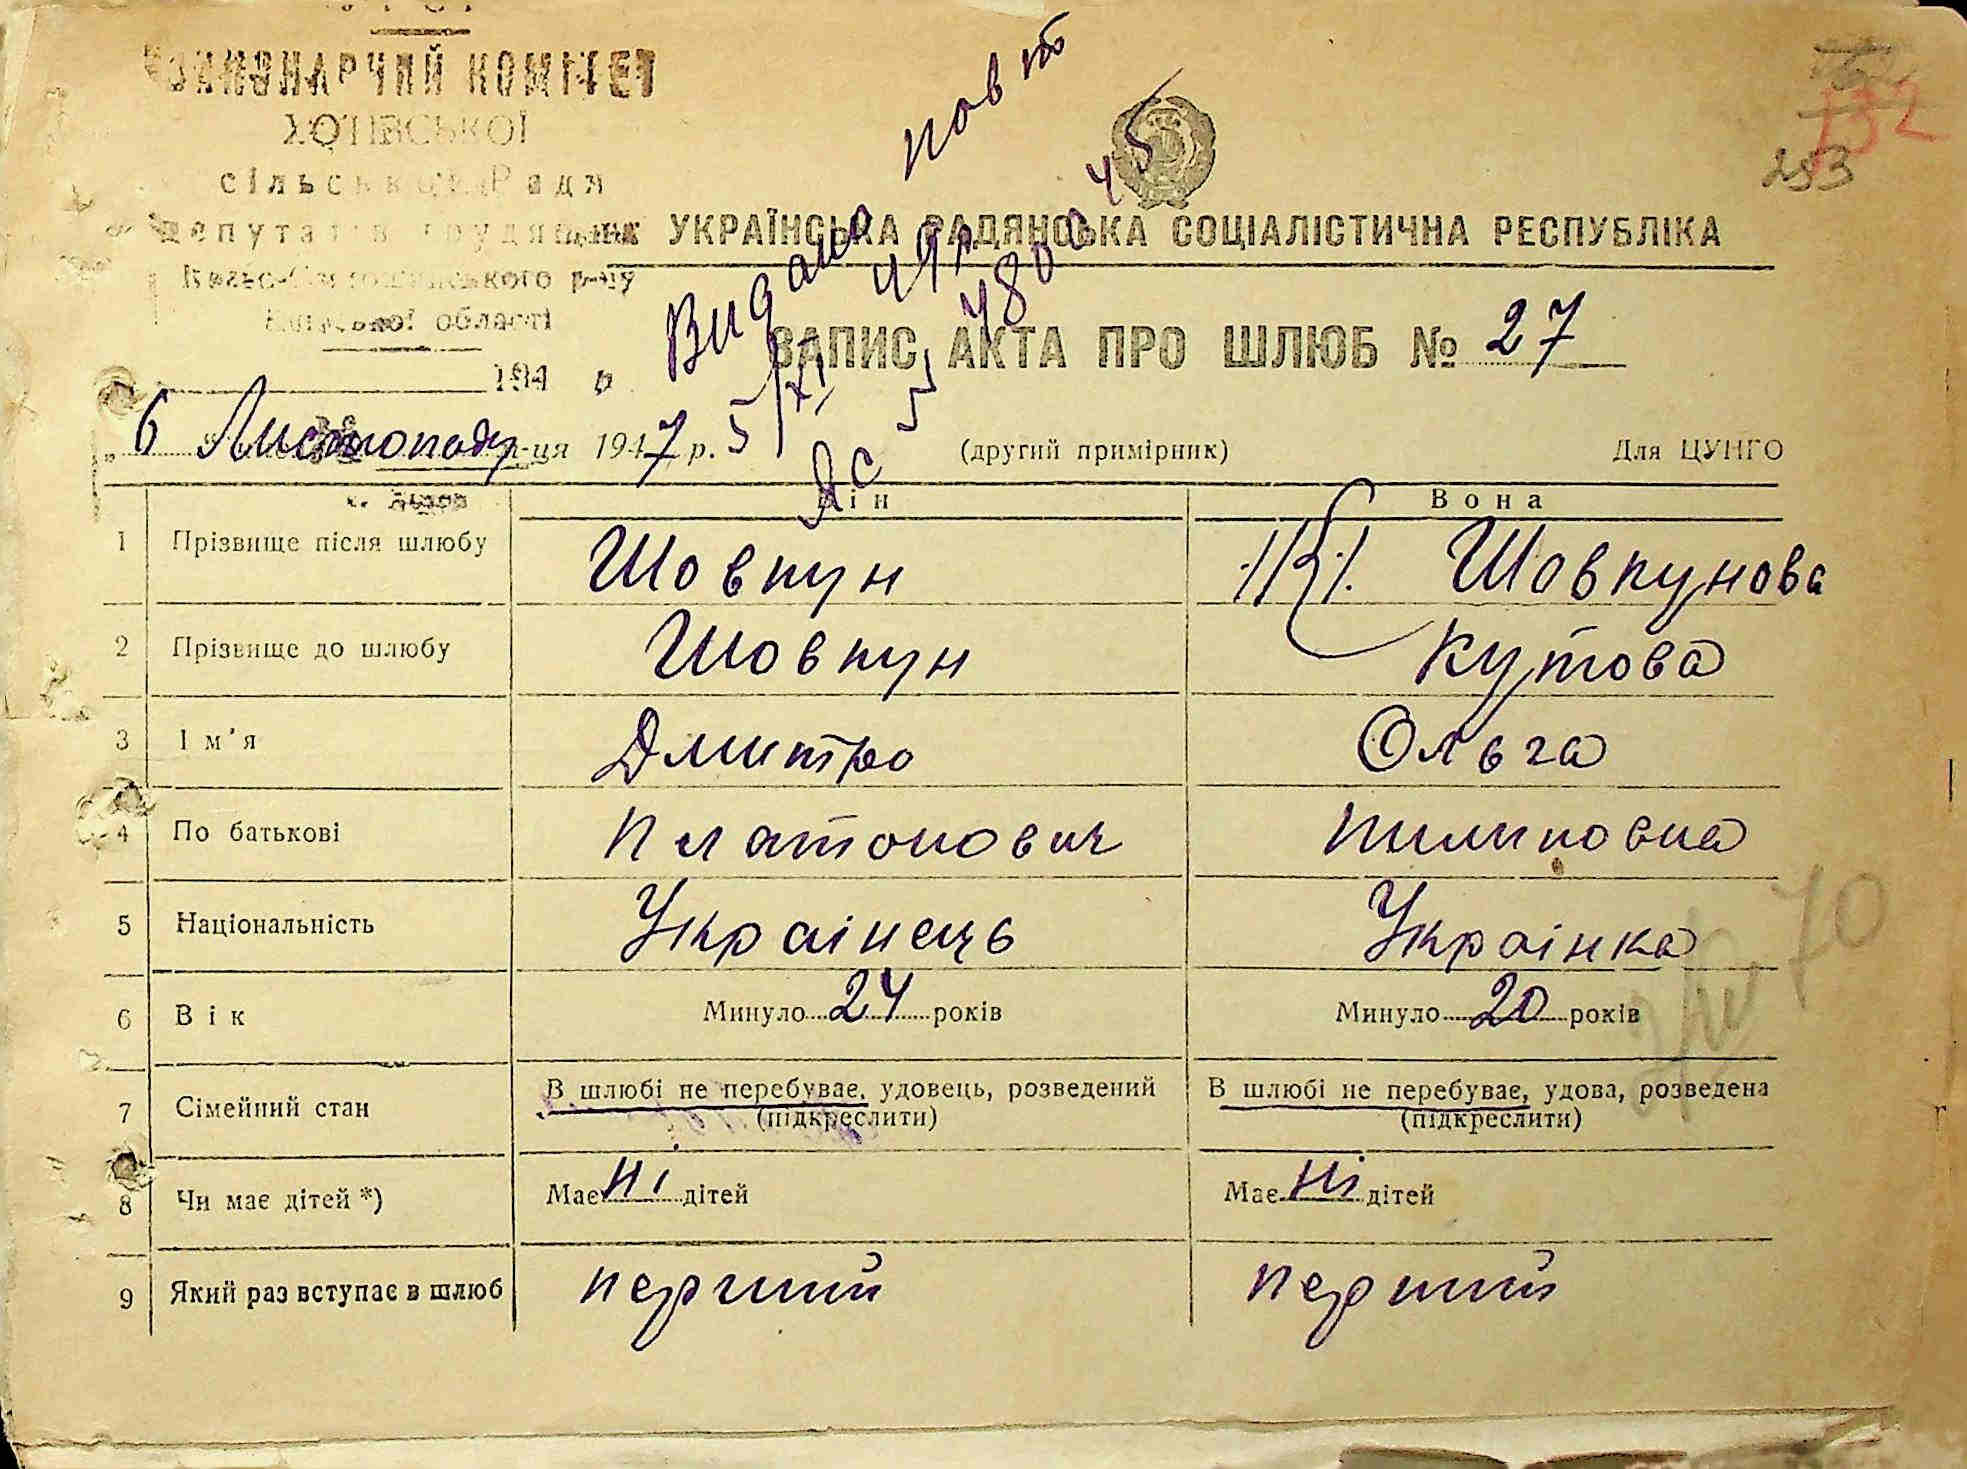 ВИКОНАВЧИЙ КОМІТЕТ
ХОТІВСЬКОЇ
сільської Ради
депутатів трудящих
Києво-Святошинського р-ну
Київської області
194 р.
132
253
Видано повт
УКРАЇНСЬКА РАДЯНСЬКА СОЦІАЛІСТИЧНА РЕСПУБЛІКА
ЗАПИС АКТА ПРО ШЛЮБ № 27
„ 6 " Листопада м-ця 1947 р.
5/XI
(другий примірник)
Для ЦУНГО
Він Вона
1 Прізвище після шлюбу Шовкун Шовкунова
2 Прізвище до шлюбу Шовкун Кутова
3 Ім'я Дмитро Ольга
4 По батькові Платонович Пилиповна
5 Національність Українець Українка
6 Вік Минуло 24 років Минуло 20 років
7 Сімейний стан В шлюбі не перебуває, удовець, розведений (підкреслити) В шлюбі не перебуває, удова, розведена (підкреслити)
8 Чи має дітей *) Має ні дітей Має ні дітей
9 Який раз вступає в шлюб перший перший
70